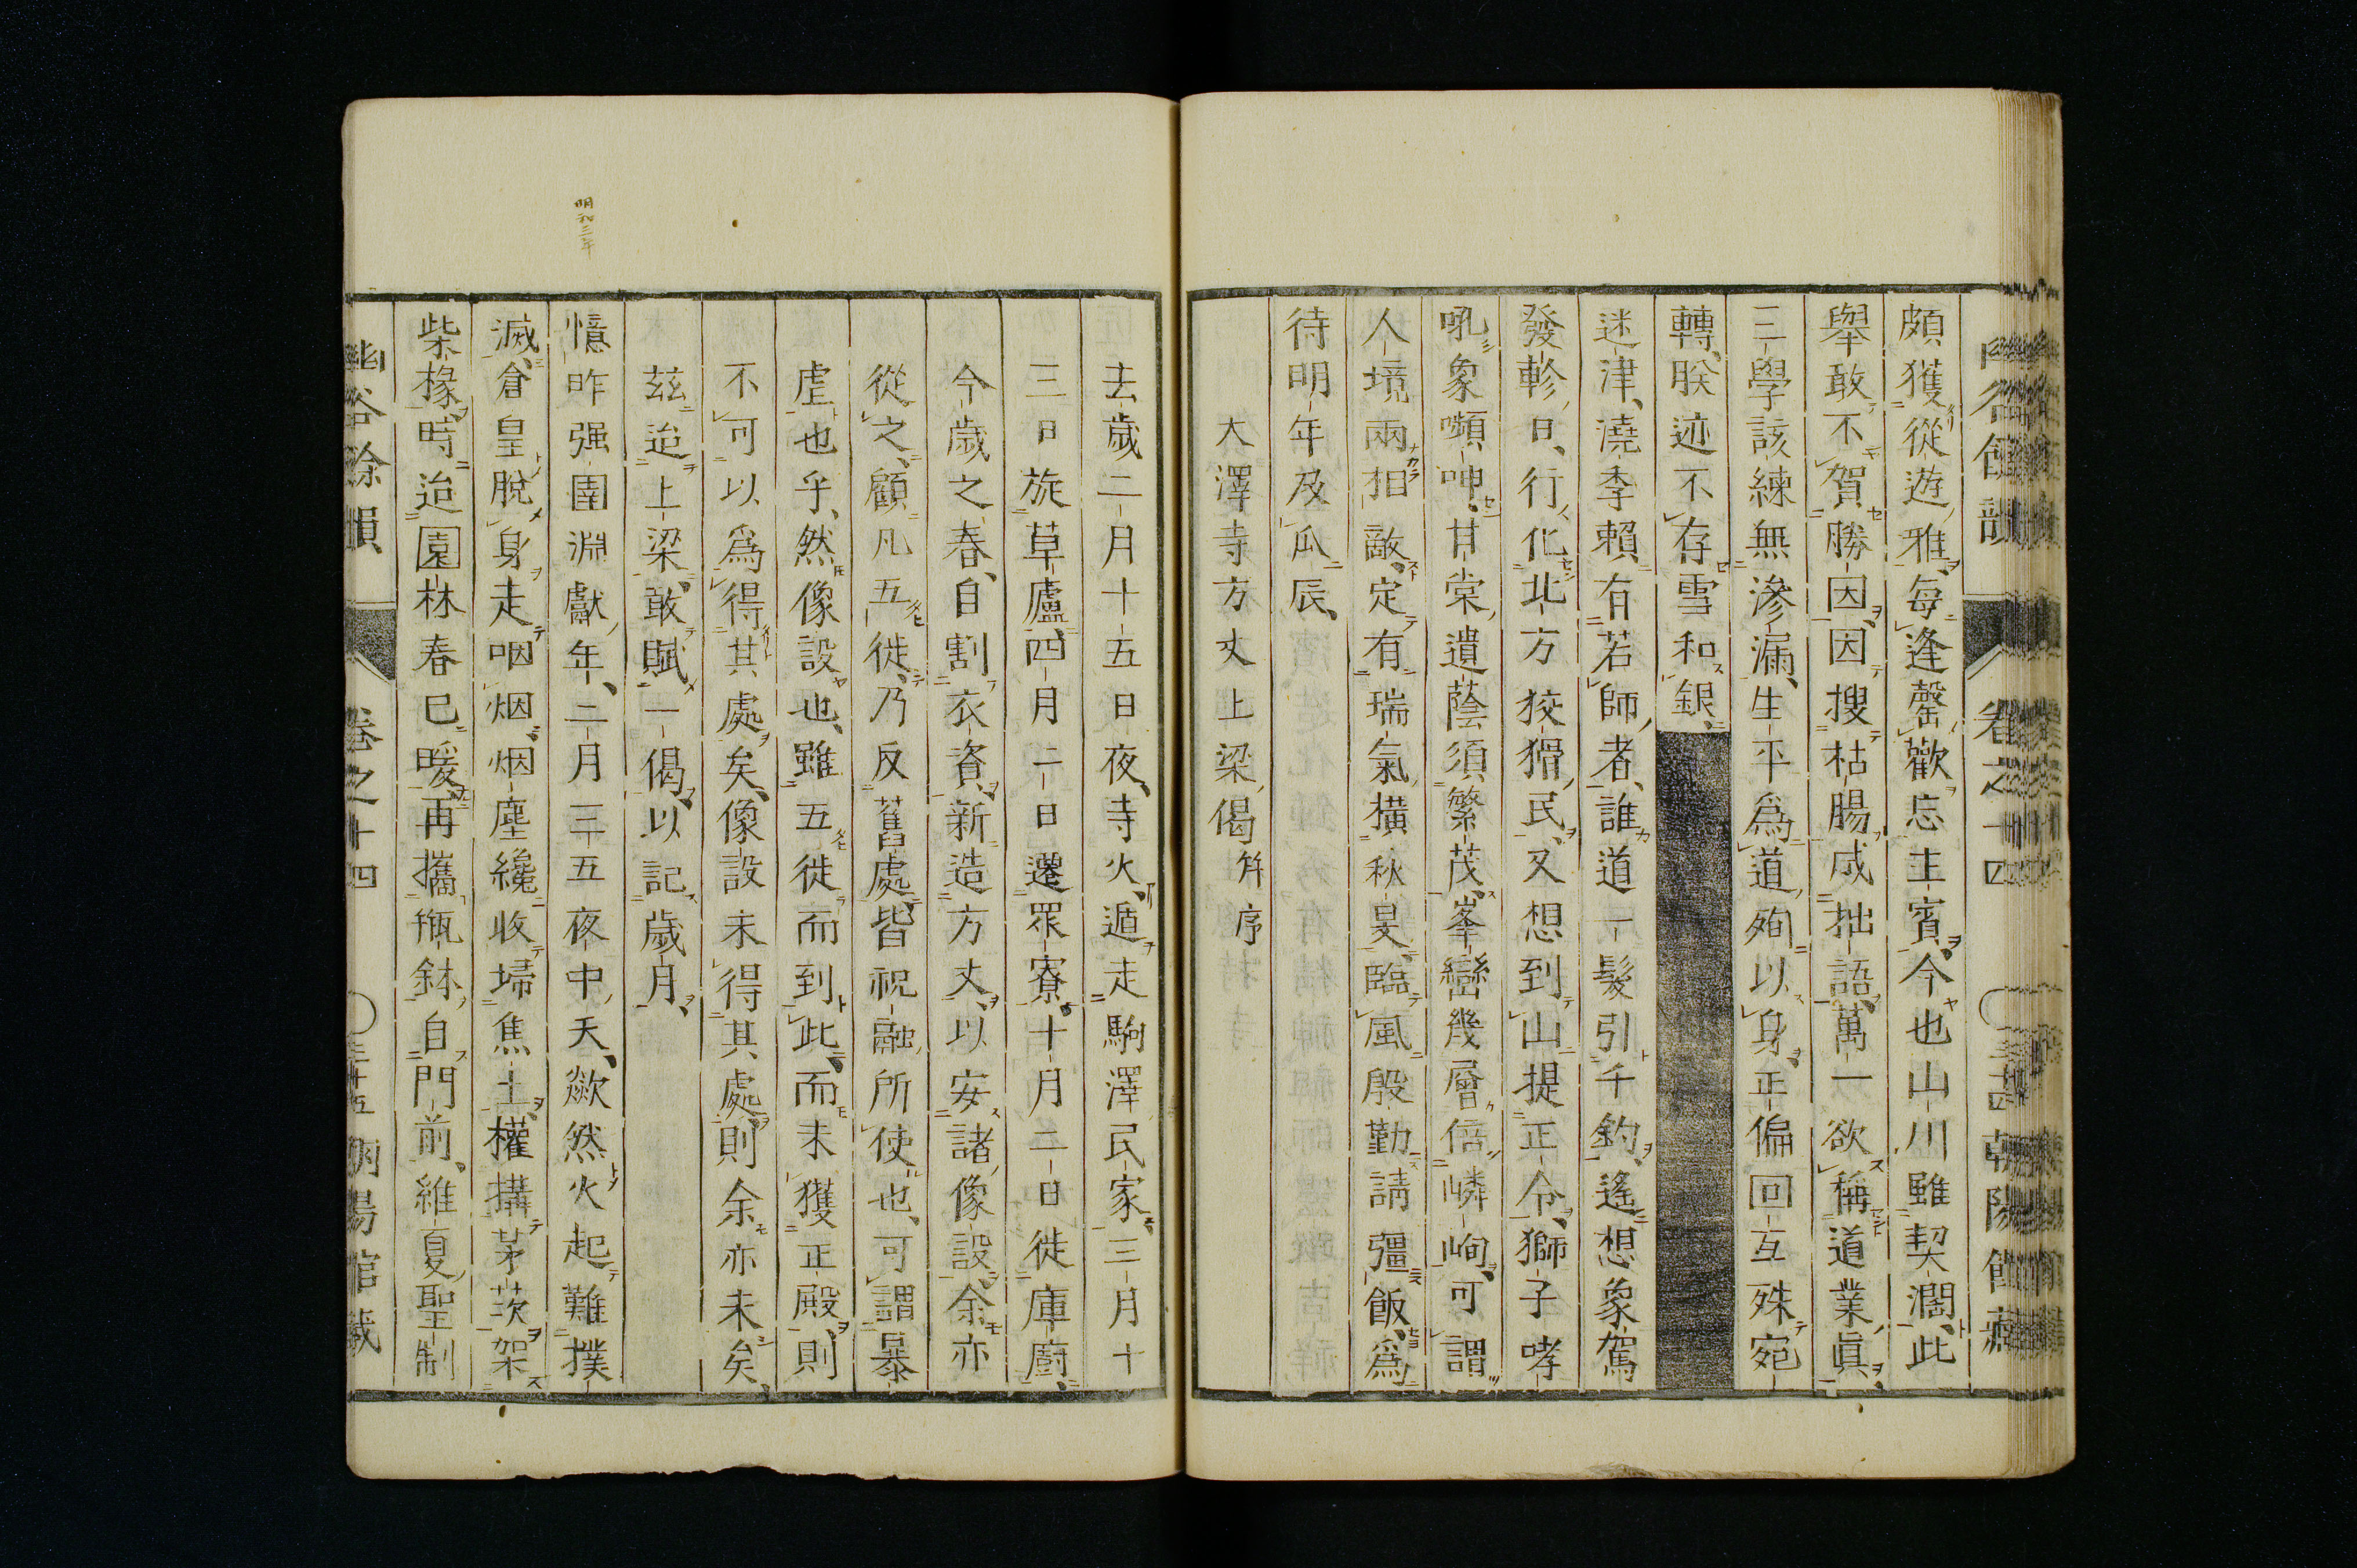 幽谷餘韻 卷之十四 三十四 朝陽館藏
頗獲從遊雅、每逢罄歡忘主賓、今也山川雖契濶、此
舉敢不賀勝因、因搜枯腸成拙語、萬一欲稱道業眞、
三學該練無滲漏、生平爲道殉以身、正偏回互殊宛
轉、朕迹不存雪和銀、
迷津、澆季賴有若師者、誰道一髮引千鈞、遙想象駕
發軫日、行化北方狡猾民、又想到山提正令、獅子哮
吼象嚬呻、甘棠遺蔭須繁茂、峯巒幾層倍嶙峋、可謂
人境兩相敵、定有瑞氣橫秋旻、臨風殷勤請彊飯、爲
待明年及瓜辰、
大澤寺方丈上梁偈幷序
去歲二月十五日夜、寺火、遁走駒澤民家、三月十
三日旋草廬、四月二日遷眾寮、十月二日徙庫廚、
今歲之春、自割衣資、新造方丈、以安諸像設、余亦
從之、顧凡五徙、乃反舊處、皆祝融所使也、可謂暴
虐也乎、然像設也、雖五徙而到此、而未獲正殿、則
不可以爲得其處矣、像設未得其處、則余亦未矣、
茲迨上梁、敢賦一偈、以記歲月、
明和三年
憶昨强圉淵獻年、二月三五夜中天、歘然火起難撲
滅、倉皇脫身走咽烟、烟塵纔收埽焦土、權搆茅茨架
柴椽、時迨園林春已暖、再攜甁鉢自門前、維夏聖制
幽谷餘韻 卷之十四 三十五 朝陽館藏